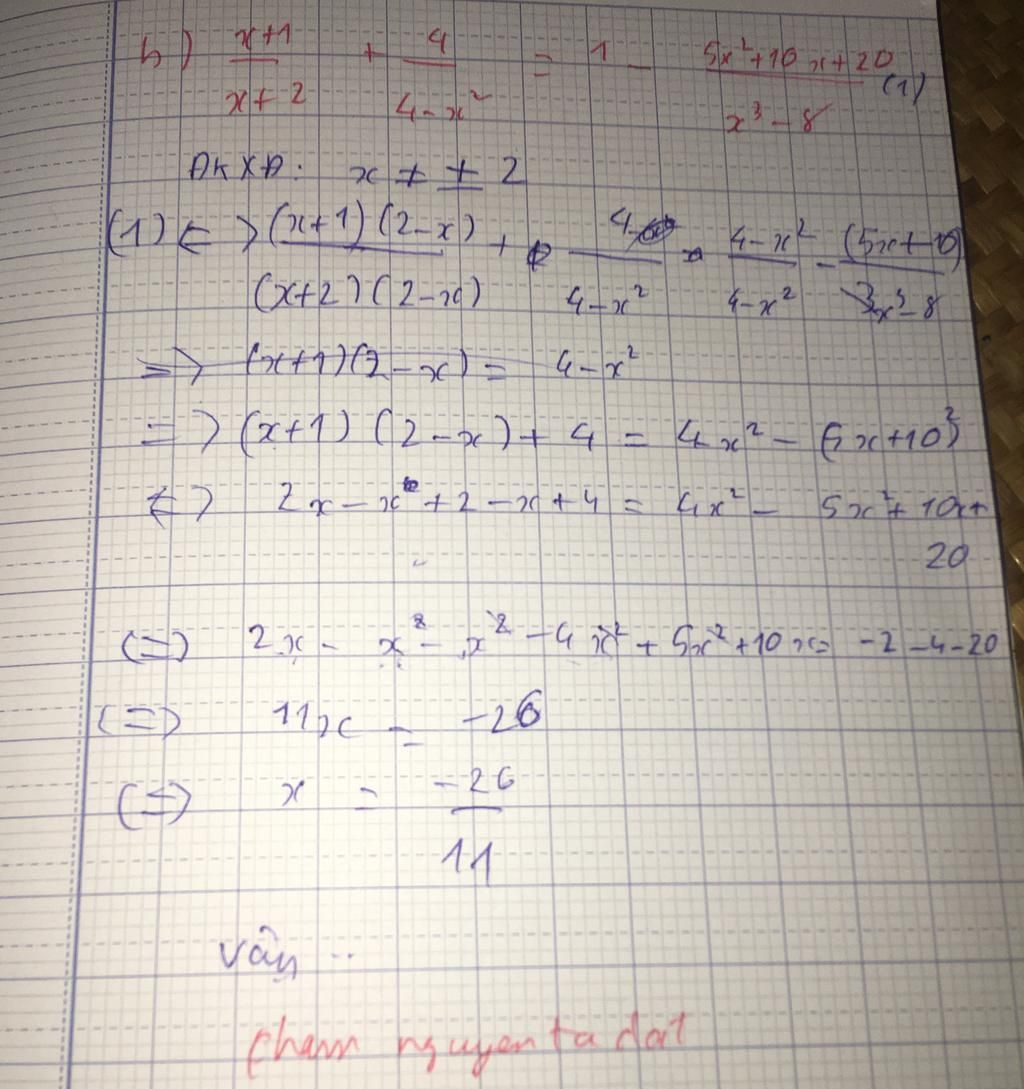 b) (x+1)/(x+2) + 4/(4-x²) = 1 - (5x²+10x+20)/(x³-8) (1)
ĐKXĐ: x ≠ ± 2
(1) <=> (x+1)(2-x)/((x+2)(2-x)) + 4/(4-x²) = (4-x²)/(4-x²) - (5x+10)/(x³-8)
=> (x+1)(2-x) = 4-x²
=> (x+1)(2-x)+4 = 4x² - (5x+10)²
<=> 2x-x²+2-x+4 = 4x² - 5x²+10x+
20
(=) 2x - x² - x² - 4x² + 5x² + 10x = -2-4-20
(=) 11x = -26
(=) x = -26/11
Vậy ..